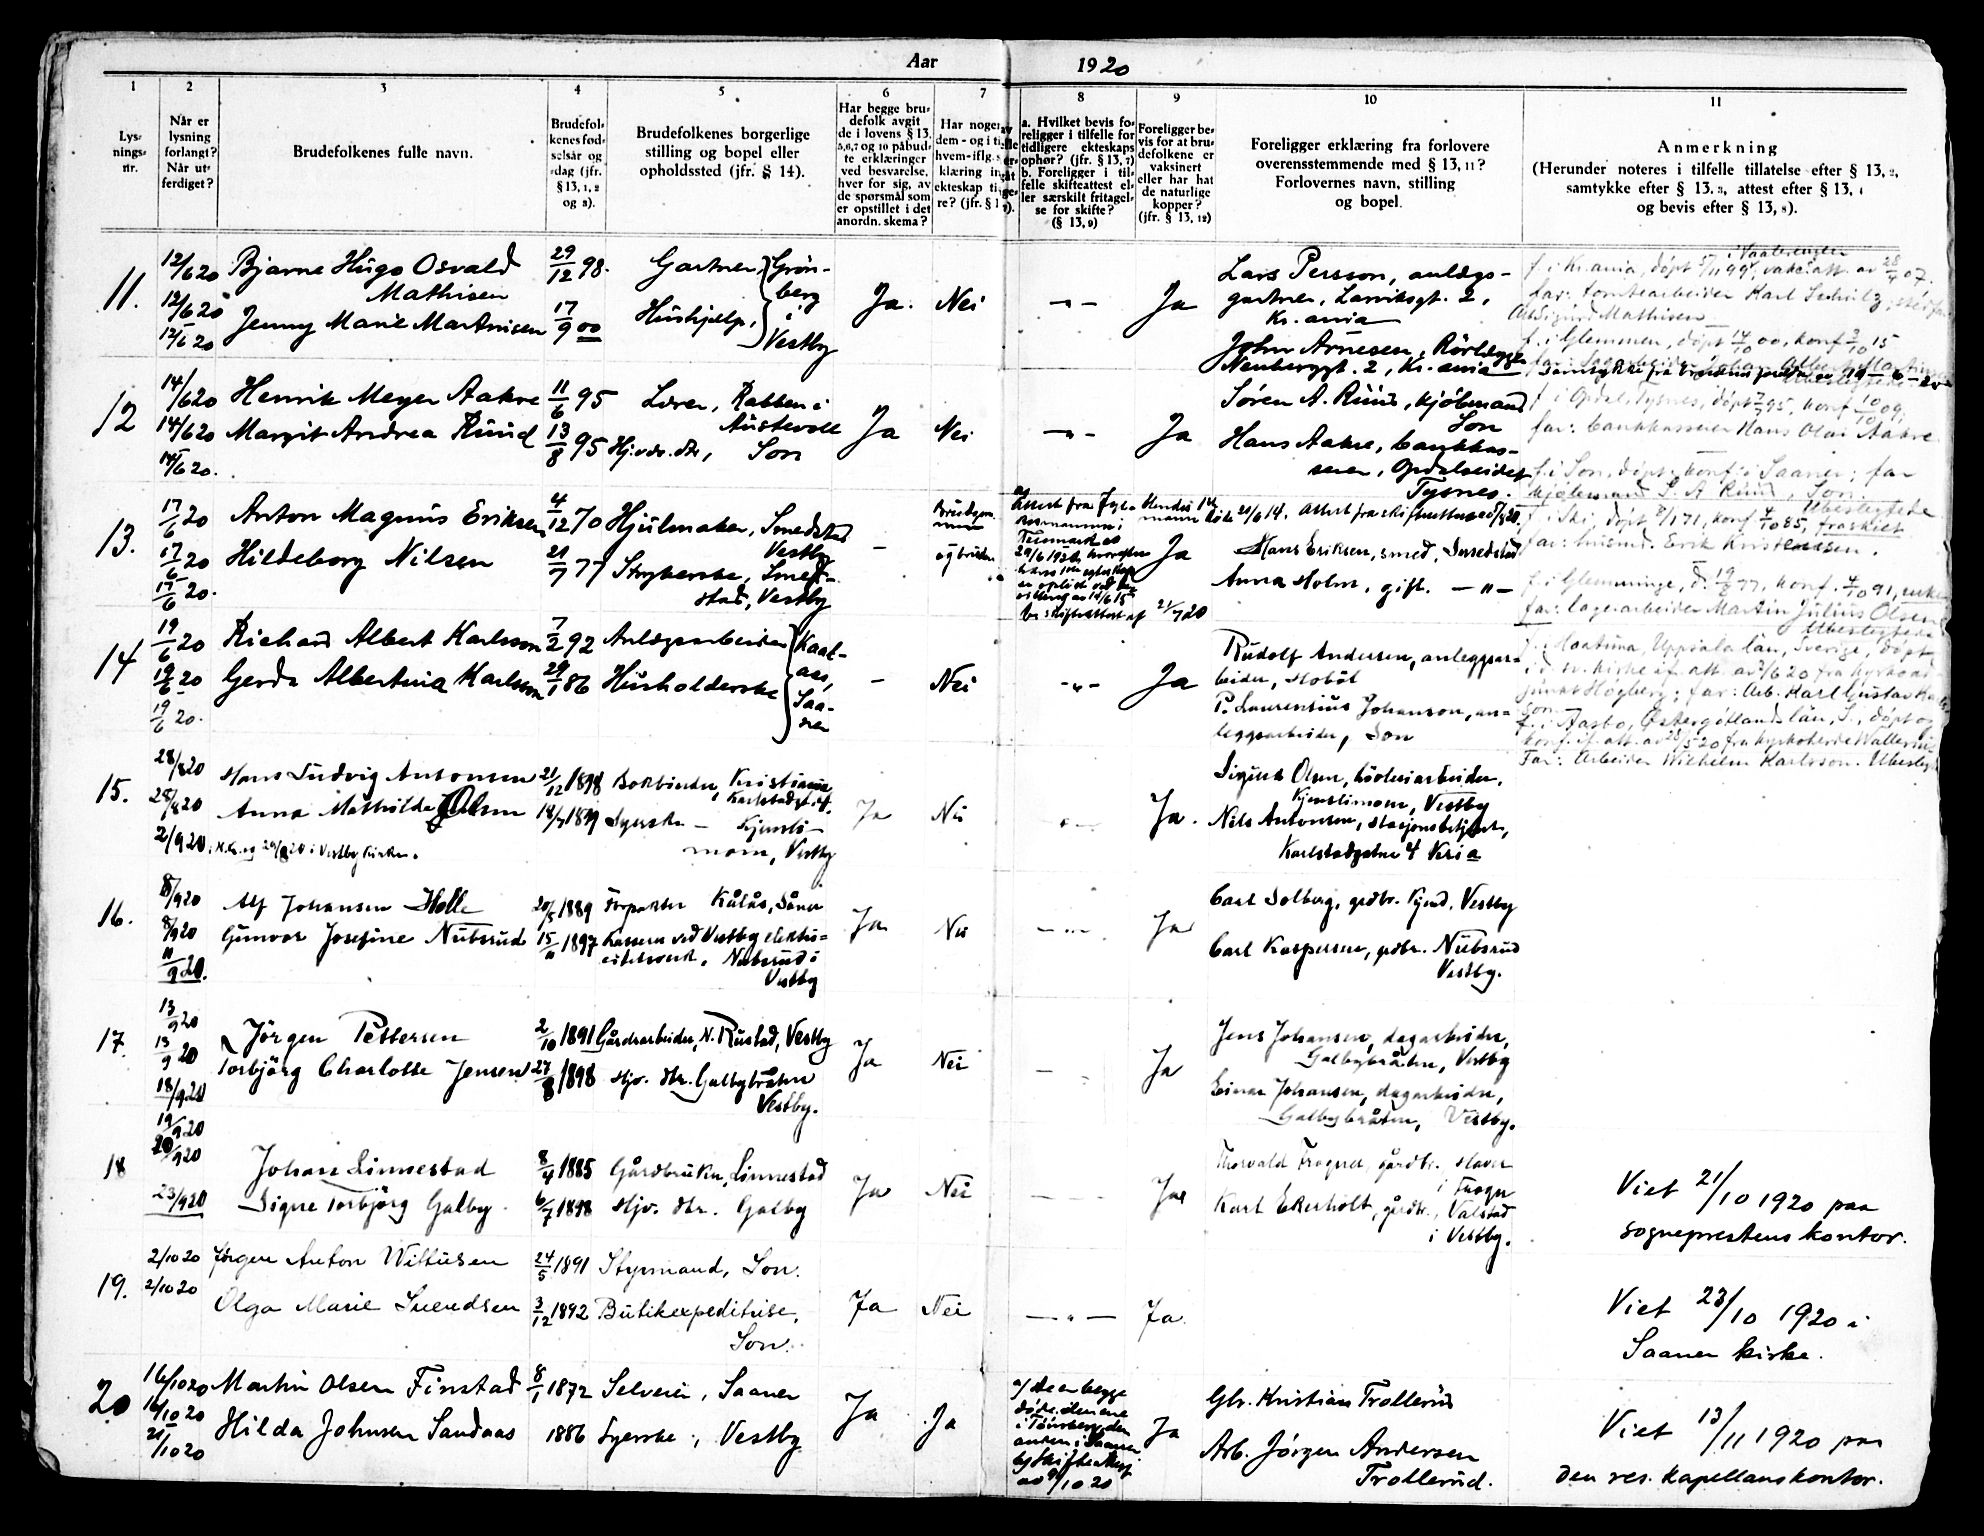 Aar 1920
1 2 3 4 5 6 7 8 9 10 11
Lys-
nings-
nr.
Når er
lysning
forlangt?
Når ut-
ferdiget?
Brudefolkenes fulle navn.
Brudefol-
kenes fød-
selsår og
-dag (jfr.
§ 13, 1, 2
og 3).
Brudefolkenes borgerlige
stilling og bopel eller
opholdssted (jfr. § 14).
Har begge bru-
defolk avgit
de i lovens § 13,
5,6,7 og 10 påbud-
te erklæringer
ved besvarelse,
hver for sig, av
de spørsmål som
er opstillet i det
anordn. skema?
Har nogen av
dem - og i tilfelle
hvem - iflg. s. er-
klæring ingåt
ekteskap tidlige-
re? (jfr. § 13, 7).
a. Hvilket bevis fo-
religger i tilfelle for
tidligere ekteskaps
ophør? (jfr. § 13, 7)
b. Foreligger i til-
felle skifteattest el-
ler særskilt fritagel-
se for skifte?
(§ 13, 9)
Foreligger be-
vis for at bru-
defolkene er
vaksinert
eller har hat
de naturlige
kopper?
(jfr. § 13, 12)
Foreligger erklæring fra forlovere
overensstemmende med § 13, 11?
Forlovernes navn, stilling
og bopel.
Anmerkning
(Herunder noteres i tilfelle tillatelse efter § 13, 2,
samtykke efter § 13, 3, attest efter § 13, 4
og bevis efter § 13, 8).
11.
12/6 20
12/6 20
12/6 20
Bjarne Hugo Osvald
Mathisen
Jenny Marie Martinsen
29/12 98.
17/9 00
Gartner,
Hushjelp,
Grön-
berg
i
Vestby
Ja.
Nei
- " -
Ja
Lars Persson, anlegs-
gartner, Larviksgt. 2,
Kr.ania
John Arnesen, Rörlegger
Neuberggt. 2, Kr.ania
12
14/6 20
14/6 20
14/6 20.
Henrik Meyer Aakre
Margit Andrea Ruud
11/6 95
13/8 95
Lærer, Rabben i
Austevoll
Hj.vær. dtr., Son
Ja
Nei
- " -
Ja
Søren A. Ruud, kjøbmand
Son
Hans Aakre, bankkas-
serer, Opdalseidet
Tysnes.
f. i Opdal, Tysnes, döpt 7/7 95, konf. 10/10 09,
far: bankkasserer Hans Olai Aakre
f. i Son, döpt, konf. i Saaner; far
kjøbmand S. A. Ruud, Son.
Ubeslegtede
13.
17/6 20
17/6 20
17/6 20.
Anton Magnus Eriksen
Hildeborg Nilsen
4/12 70
21/7 77
Hjulmaker, Smedstad
Vestby
Strykerske, Smed-
stad, Vestby
-
Brudgom-
men
og bruden
Ja
Hans Eriksen, smed, Smedstad
Anna Holm, gift. - " -
f. i Ski, döpt 8/1 71, konf. 4/10 85, fraskilt
far: husmd. Erik Kristensen.
f. i Glemminge, d. 19/8 77, konf. 4/10 91, enke
far: lagerarbeider Martin Julius Olsen
Ubeslegtede
14
19/6 20
19/6 20
19/6 20.
Richard Albert Karlsson
Gerda Albertina Karlsson
7/2 92
29/1 86
Anlægsarbeider
Husholderske
Kaal-
aas,
Saa-
ner
-
Nei
- " -
Ja
Rudolf Andersen, anleggsar-
beider, Hobøl
P. Laurensius Johanson, an-
leggsarbeider, Son
15.
28/8 20
28/8 20
2/9 20
Hans Ludvig Antonsen
Anna Mathilde Olsen
21/12 1898
18/7 1899
Bokbinder, Kristiania
Karlstadgt. 4.
Syerske - Kjensli-
moen, Vestby
Ja
Nei
Ja.
Sigurd Olsen, hövleriarbeider,
Kjenslimoen, Vestby
Nils Antonsen, stasjonsbetjent,
Karlstadgaten 4 Kr.ia
16.
8/9 20
8/9 20
11/9 20.
Alf Johansen Holle
Gunvor Josefine Nubsrud
20/5 1889
15/11 1897
Forpakter Kålås, Såner
Kasserer ved Vestby elektri-
citetsverk. Nubsrud i
Vestby
Ja
Nei
- " -
Ja
Carl Solberg, grdbr. Kjend, Vestby
Carl Kaspersen, grdbr. Nubsrud
Vestby.
17.
13/9 20
13/9 20
18/9 20
19/9 20
Jörgen Pettersen
Torbjörg Charlotte Jensen
2/10 1891
27/8 1898
Gårdsarbeider, N. Rustad, Vestby
Hjv. dtr. Galbybråten
Vestby.
Ja
Nei
Ja
Jens Johansen, dagarbeider,
Galbybråten, Vestby
Einar Johansen, dagarbeider,
Galbybråten, Vestby.
18
20/9 20
23/9 20
Johan Linnestad
Signe Torbjörg Galby.
8/4 1885
6/7 1898
Gårdbruker, Linnestad
Hjv. dtr. Galby
Ja
Nei
Ja
Thorvald Frogner, gårdbr., Haver
i Frogn
Karl Ekerholt, gårdbr., Valstad
i Vestby.
Viet 21/10 1920 paa
sogneprestens kontor.
19.
2/10 20
2/10 20
Jørgen Anton Wittusen
Olga Marie Svendsen
24/5 1891
3/12 1892
Styrmand, Son.
Butikexpeditrise,
Son.
Ja
Nei
- " -
Ja.
Viet 23/10 1920 i
Saaner kirke.
20
16/10 20
16/10 20
21/10 20
Martin Olsen Finstad
Hilda Johnsen Sandaas
8/1 1872
1886
Selveier, Saaner
Syerske, Vestby
Ja
Ja
a/ De er begge
döde. Den ene
i Tönsberg, den
anden i Saaner
b/ Skifteattest
av 9/10 20
Ja
Gbr. Kristian Trollerud
Arb. Jörgen Andersen
Trollerud.
Viet 13/11 1920 paa
den res. kapellans kontor.